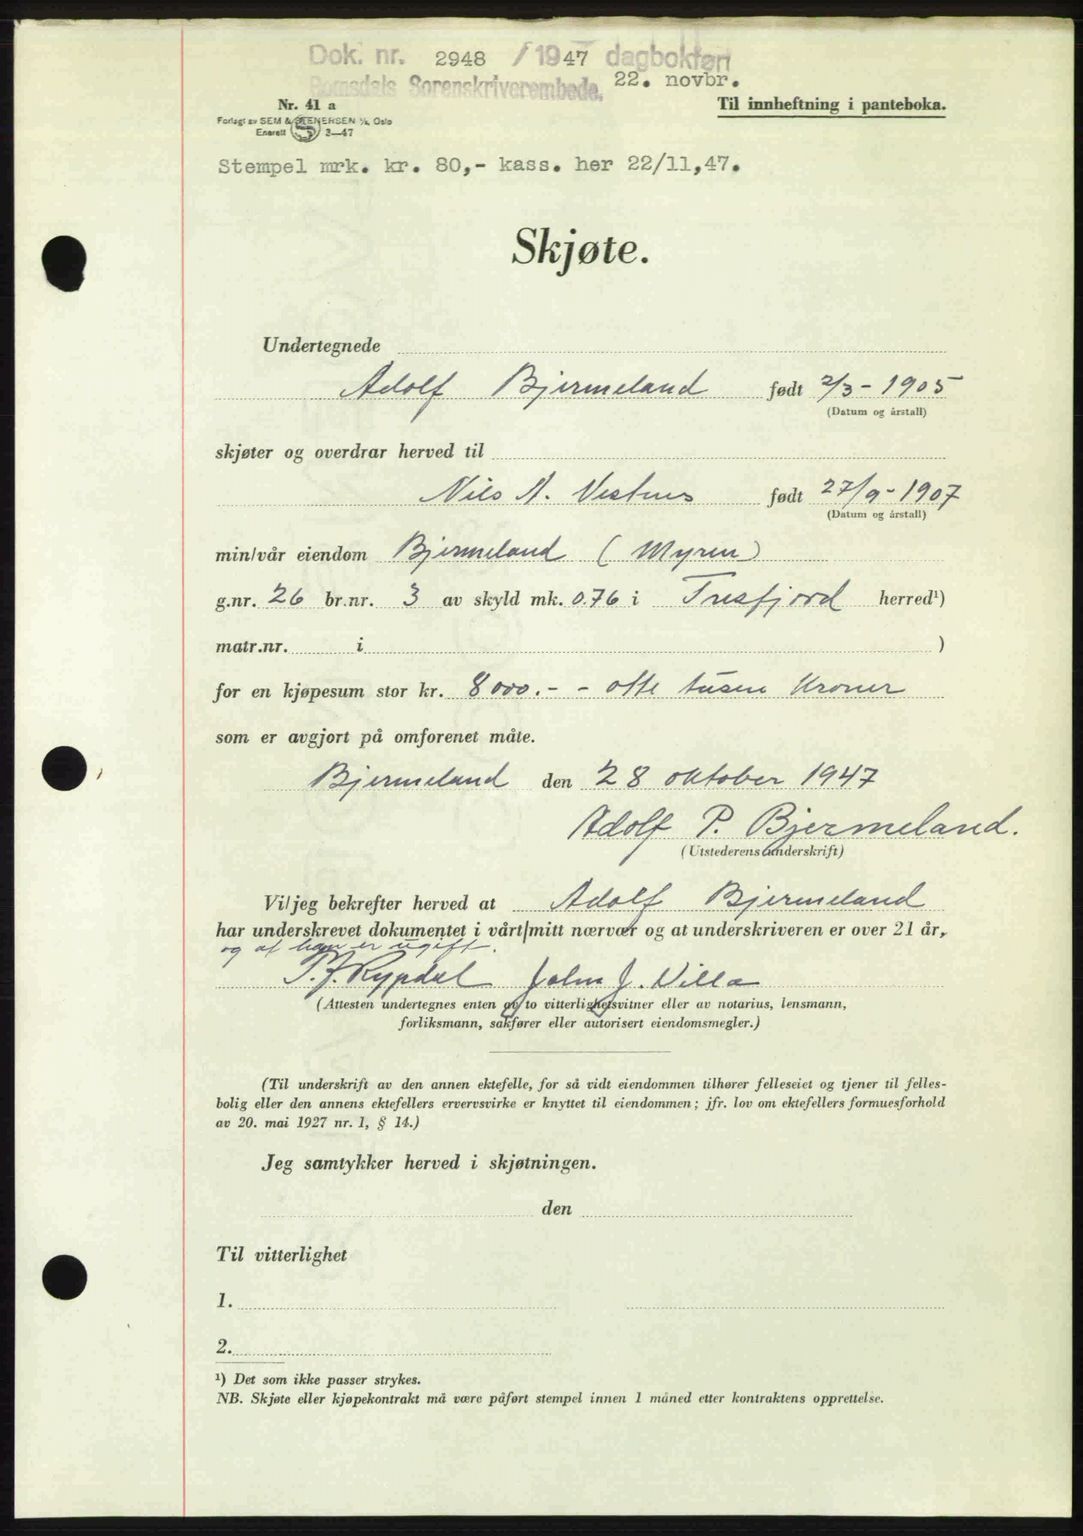 Dok. nr. 2948 / 1947 dagbokført
Romsdals Sorenskriverembede. 22. novbr.
Nr. 41 a
Til innheftning i panteboka.
Forlagt av SEM & STENERSEN A/S, Oslo
Enerett S 3—47
Stempel mrk. kr. 80,- kass. her 22/11,47.
Skjøte.
Undertegnede
Adolf Bjermeland født 2/3 - 1905
(Datum og årstall)
skjøter og overdrar herved til
Nils A. Vestnes født 27/9 - 1907
(Datum og årstall)
min/vår eiendom Bjermeland (Myren)
g.nr. 26 br.nr. 3 av skyld mk. 0.76 i Tresfjord herred¹)
matr.nr. i )
for en kjøpesum stor kr. 8000.- - otte tusen kroner
som er avgjort på omforenet måte.
Bjermeland den 28 oktober 1947
Adolf P. Bjermeland.
(Utstederens underskrift)
Vi/jeg bekrefter herved at Adolf Bjermeland
har underskrevet dokumentet i vårt/mitt nærvær og at underskriveren er over 21 år,
og at han er ugift.
T. J. Rypdal John J. Villa
(Attesten undertegnes enten av to vitterlighetsvitner eller av notarius, lensmann,
forliksmann, sakfører eller autorisert eiendomsmegler.)
(Til underskrift av den annen ektefelle, for så vidt eiendommen tilhører felleseiet og tjener til felles-
bolig eller den annens ektefellers ervervsvirke er knyttet til eiendommen; jfr. lov om ektefellers formuesforhold
av 20. mai 1927 nr. 1, § 14.)
Jeg samtykker herved i skjøtningen.
den
Til vitterlighet
1.
2.
¹) Det som ikke passer strykes.
NB. Skjøte eller kjøpekontrakt må være påført stempel innen 1 måned etter kontraktens opprettelse.